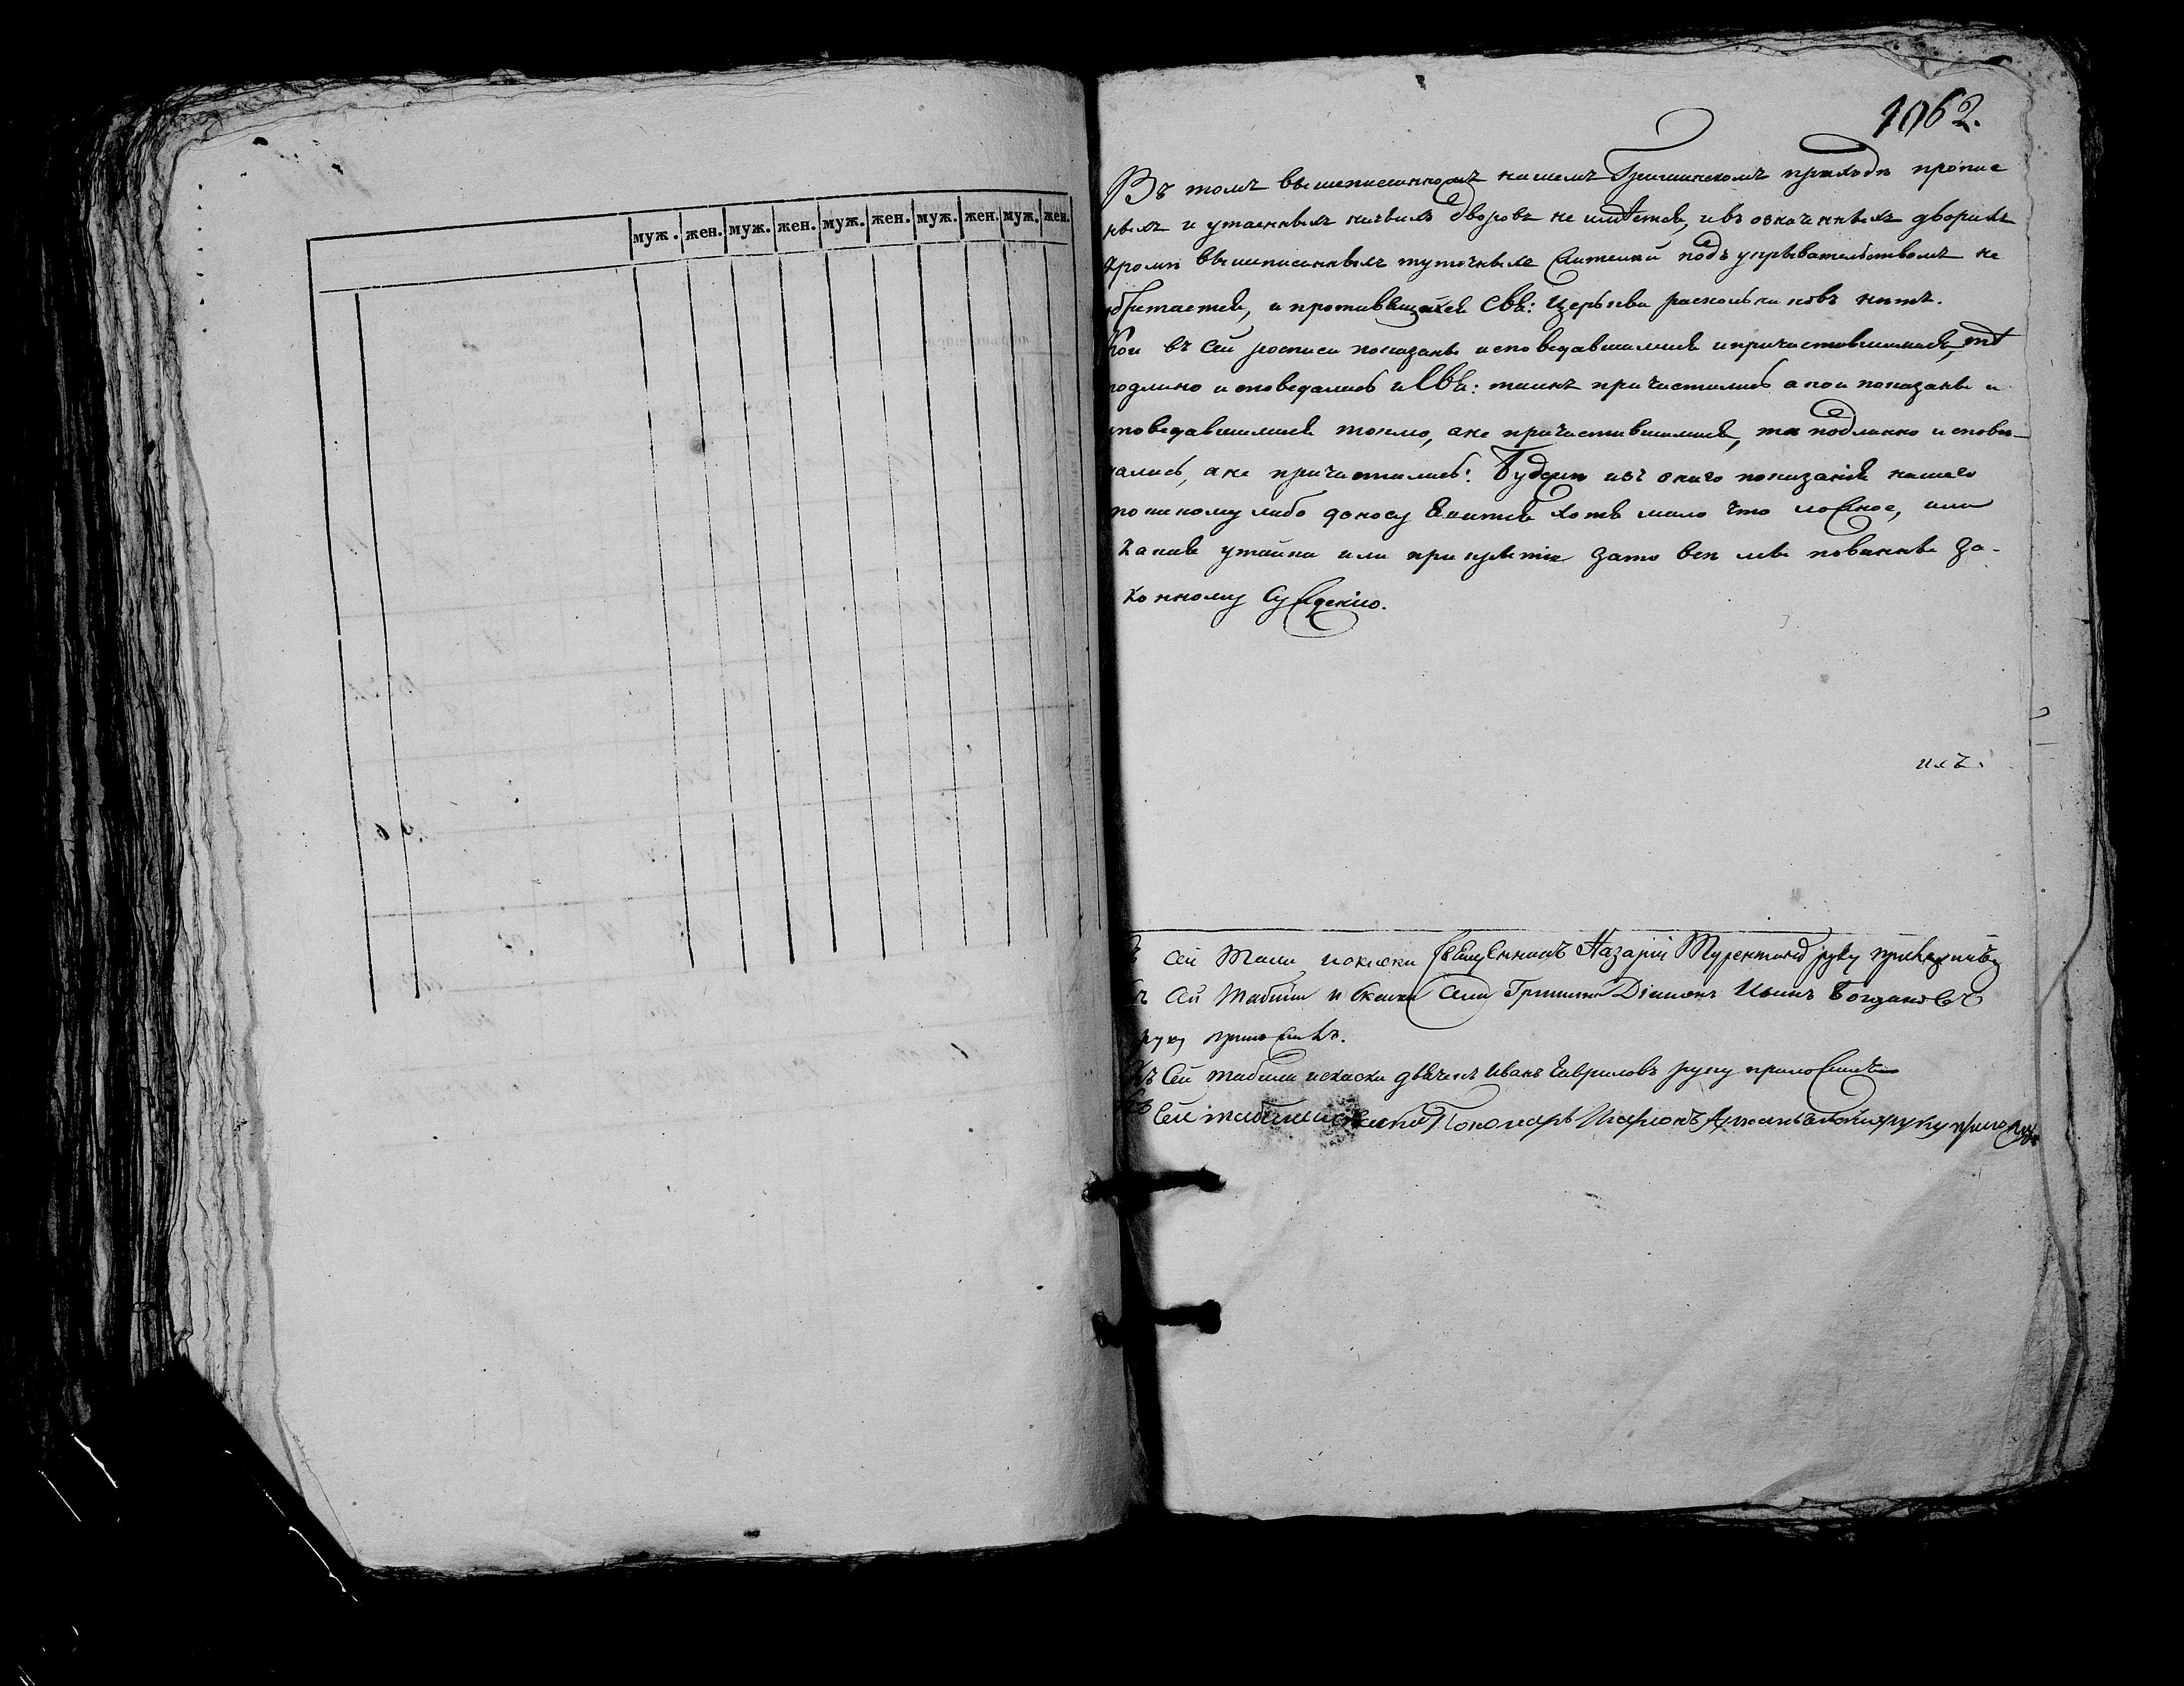 муж. жен. муж. жен. муж. жен. муж. жен. муж. жен.
1062.
Въ томъ вышеписанномъ нашемъ Гришинскомъ приходѣ пропис
ныхъ и утаенныхъ ничьихъ дворовъ не имѣется, и въ означенныхъ дворахъ
кромѣ вышеписанныхъ туточныхъ жителей подъ укрывательствомъ не
обрѣтается, и противящихся Свя: Церькви раскольниковъ нѣтъ.
Кои въ сей росписи показаны исповедавшимися и причастившимися, тѣ
подлино исповедались и Свя: таинъ причастились а кои показаны и
споведавшимися токмо, а не причастившимися, тѣ подлинно испове-
дались, а не причастились: Будеже изъ онаго показанія нашего
по какому либо доносу явится хотя мало что ложное, или
какая утайка или приписка зато всѣ мы повинны за-
конному суждению.
ихъ.
сей священникъ Назарій руку приложилъ
Къ сей табели и скаски села Гришина Діаконъ Иванъ Богдановъ
руку приложилъ.
Къ сей табели и скаски дьячекъ Иванъ Гавриловъ руку приложилъ
Къ сей табели и скаски Пономарь руку приложилъ